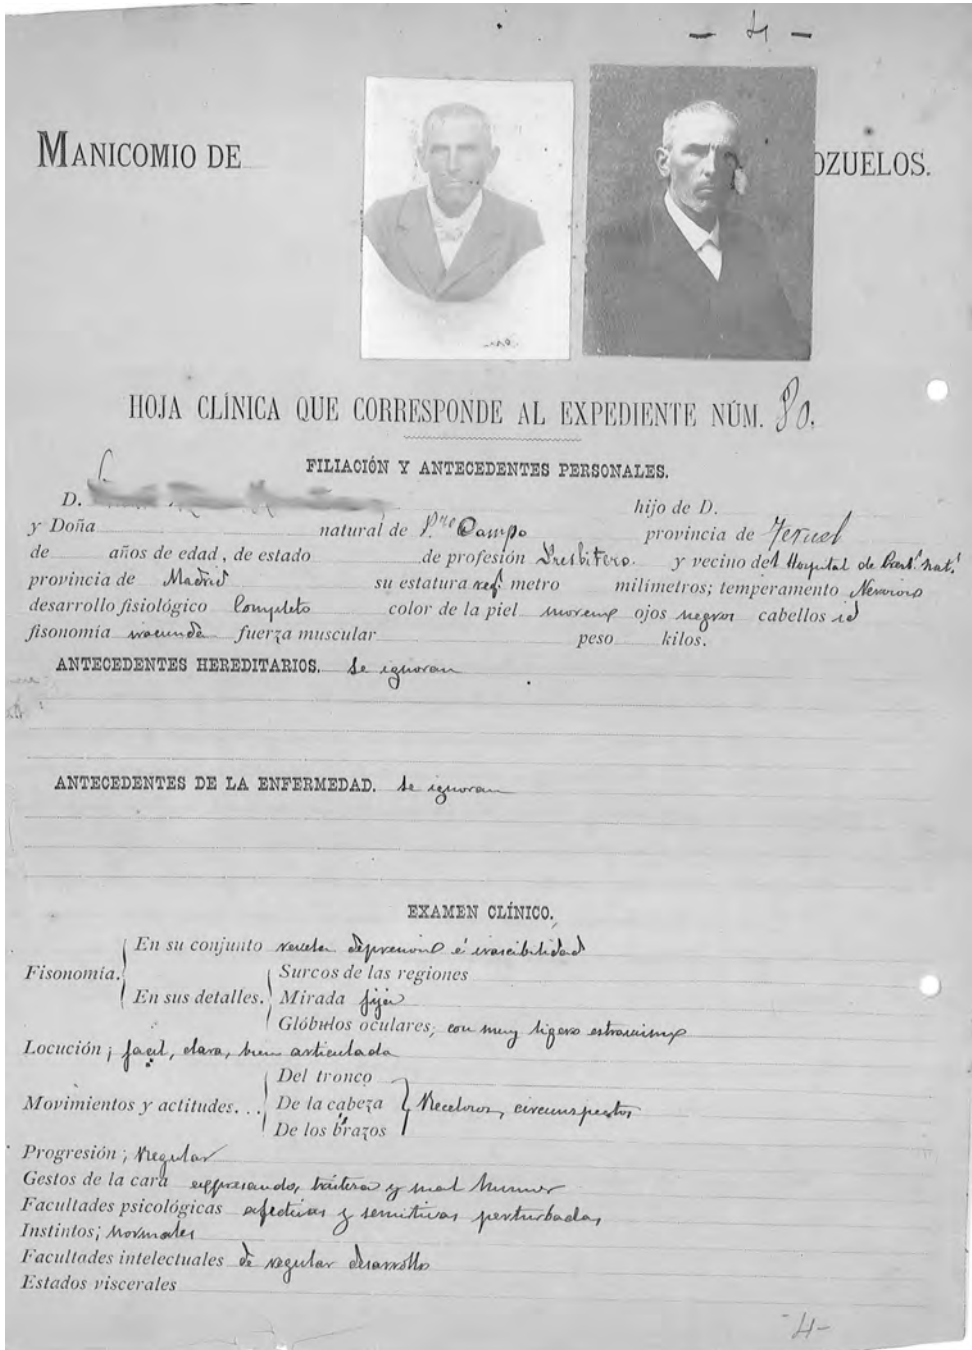 - 4 -
MANICOMIO DE OZUELOS.
HOJA CLÍNICA QUE CORRESPONDE AL EXPEDIENTE NÚM. 80.
FILIACIÓN Y ANTECEDENTES PERSONALES.
D. hijo de D.
y Doña natural de Campo provincia de Teruel
de años de edad, de estado de profesión Presbitero y vecino del Hospital de
provincia de Madrid su estatura reg. metro milímetros; temperamento Nervioso
desarrollo fisiológico Completo color de la piel moreno ojos negros cabellos id
fisonomía iracunda fuerza muscular peso kilos.
ANTECEDENTES HEREDITARIOS. Se ignoran
ANTECEDENTES DE LA ENFERMEDAD. Se ignoran
EXAMEN CLÍNICO.
Fisonomía. En su conjunto revela depresion é irascibilidad
En sus detalles. Surcos de las regiones
Mirada fija
Glóbulos oculares; con muy ligero estravismo
Locución; facil, clara, bien articulada
Movimientos y actitudes... Del tronco
De la cabeza Recelosos, circunspectos
De los brazos
Progresión; Regular
Gestos de la cara expresando, tristeza y mal humor
Facultades psicológicas afectivas y sensitivas perturbadas
Instintos; Normales
Facultades intelectuales de regular desarrollo
Estados viscerales
-4-